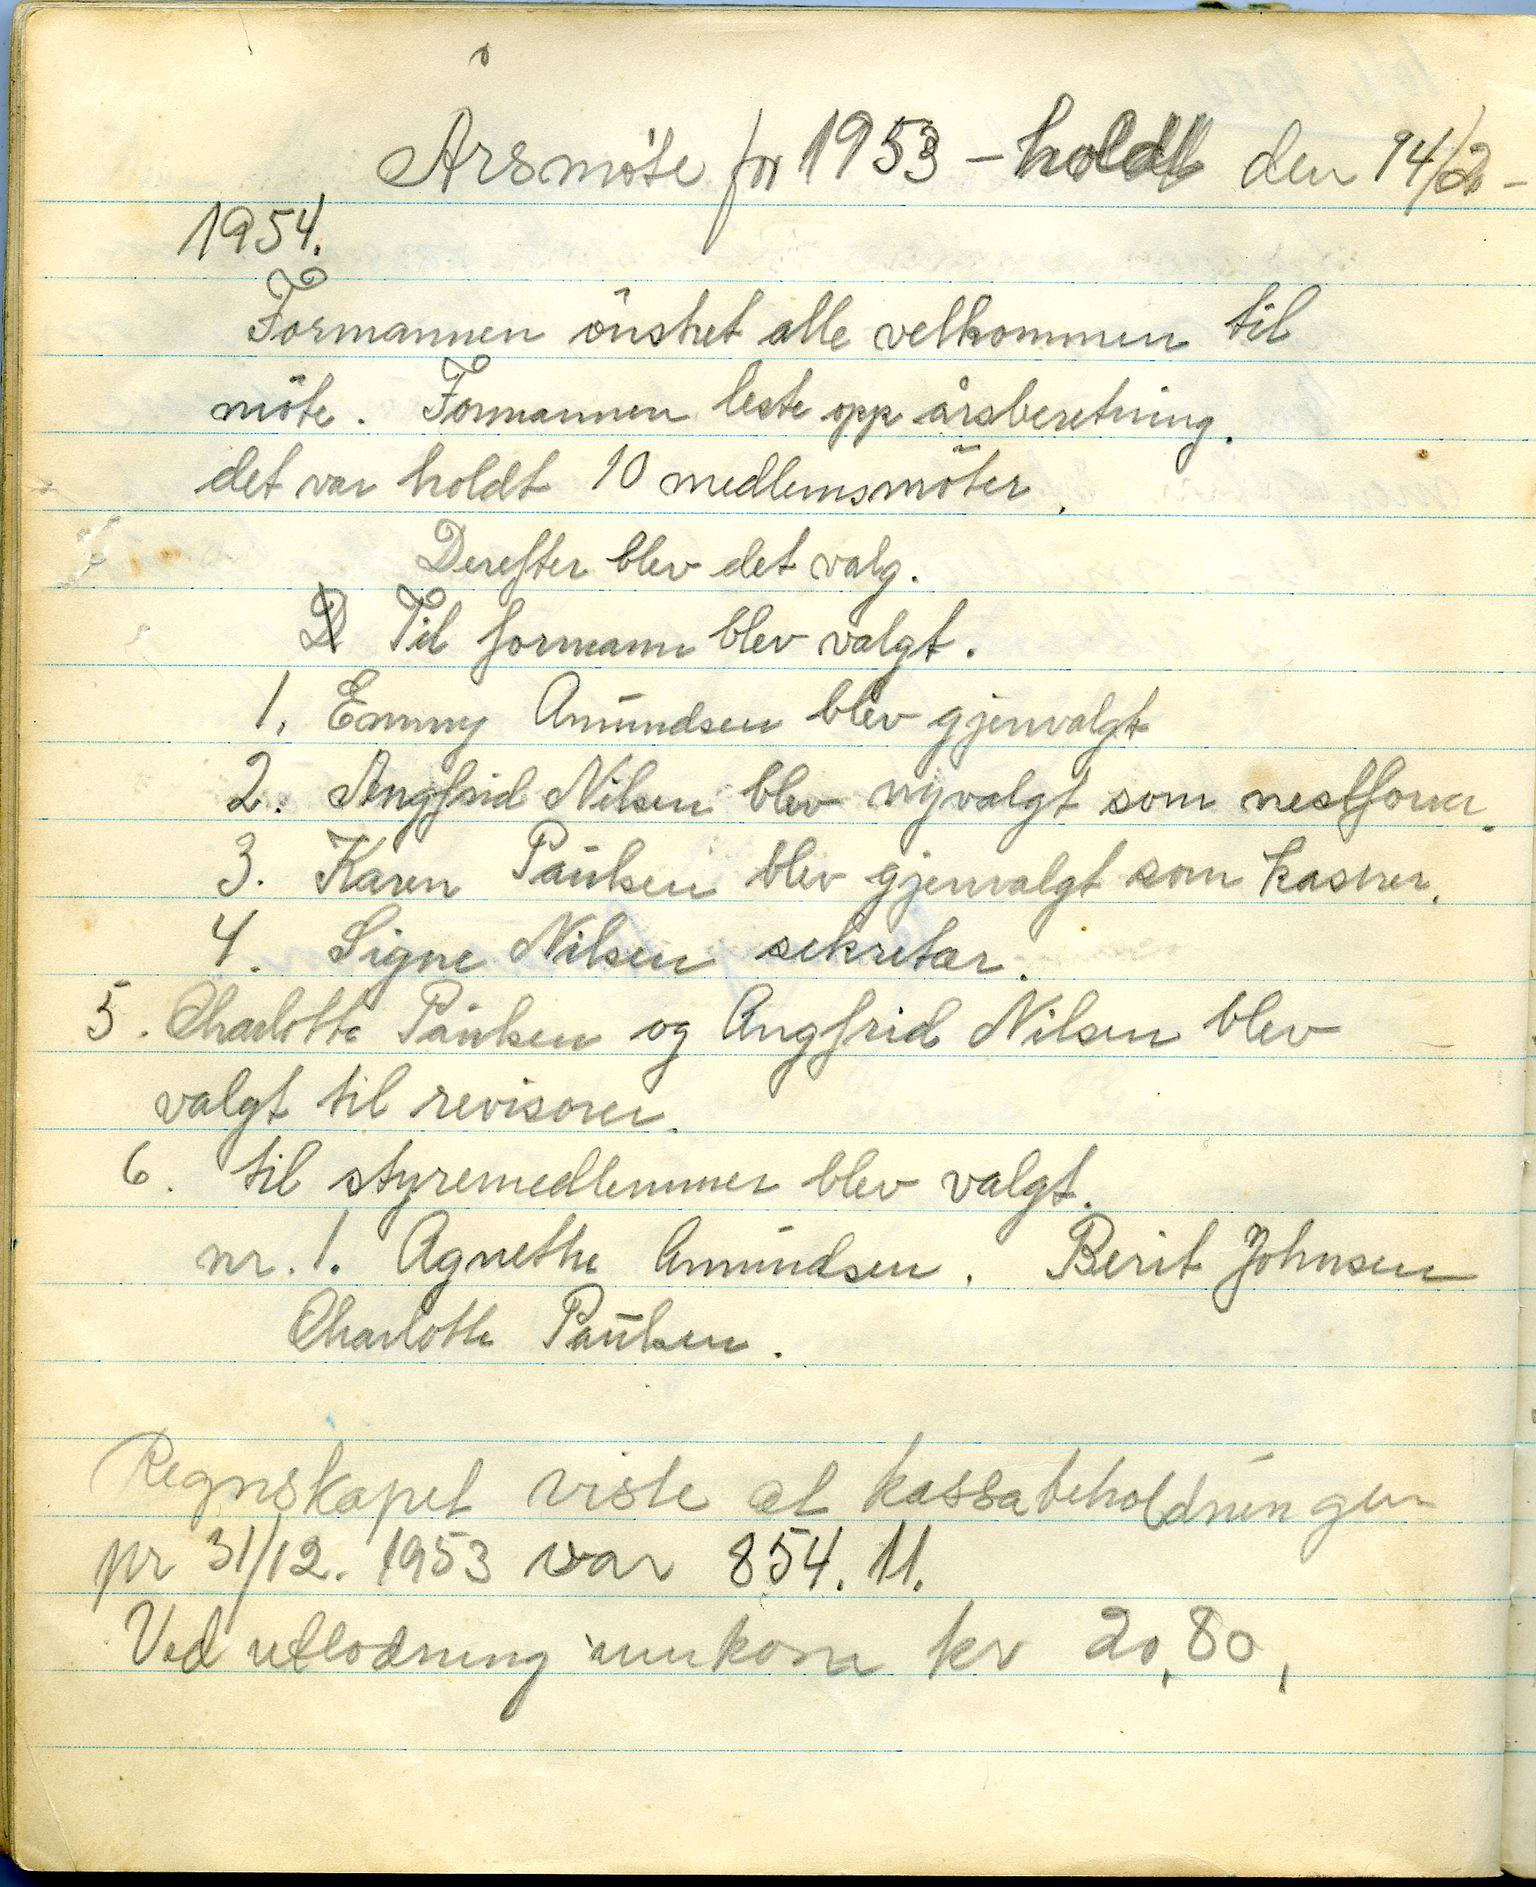 Årsmöte for 1953 – holdt den 14/2 –
1954.
Formannen önsket alle velkommen til
möte. Formannen leste opp årsberetning.
det var holdt 10 medlemsmöter.
Derefter blev det valg.
D Til formann blev valgt.
1. Emmy Amundsen blev gjenvalgt
2. Angfrid Nilsen blev nyvalgt som nestform.
3. Karen Paulsen blev gjenvalgt som kasser.
4. Signe Nilsen sekretær.
5. Charlotte Paulsen og Angfrid Nilsen blev
valgt til revisorer.
6. til styremedlemmer blev valgt.
nr. 1. Agnethe Amundsen. Berit Johnsen
Charlotte Paulsen.
Regnskapet viste at kassabeholdningen
pr 31/12. 1953 var 854.11.
Ved utlodning innkom kr 20,80,